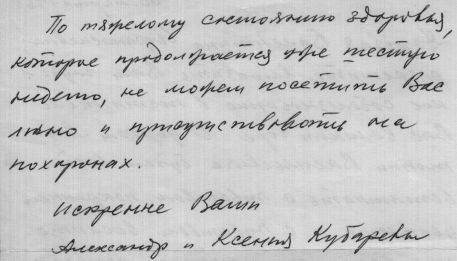 По тяжелому состоянию здоровья,
которое продолжается уже шестую
неделю, не можем посетить Вас
лично и присутствовать на
похоронах.
Искренне Ваши
Александр и Ксения Кубаревы